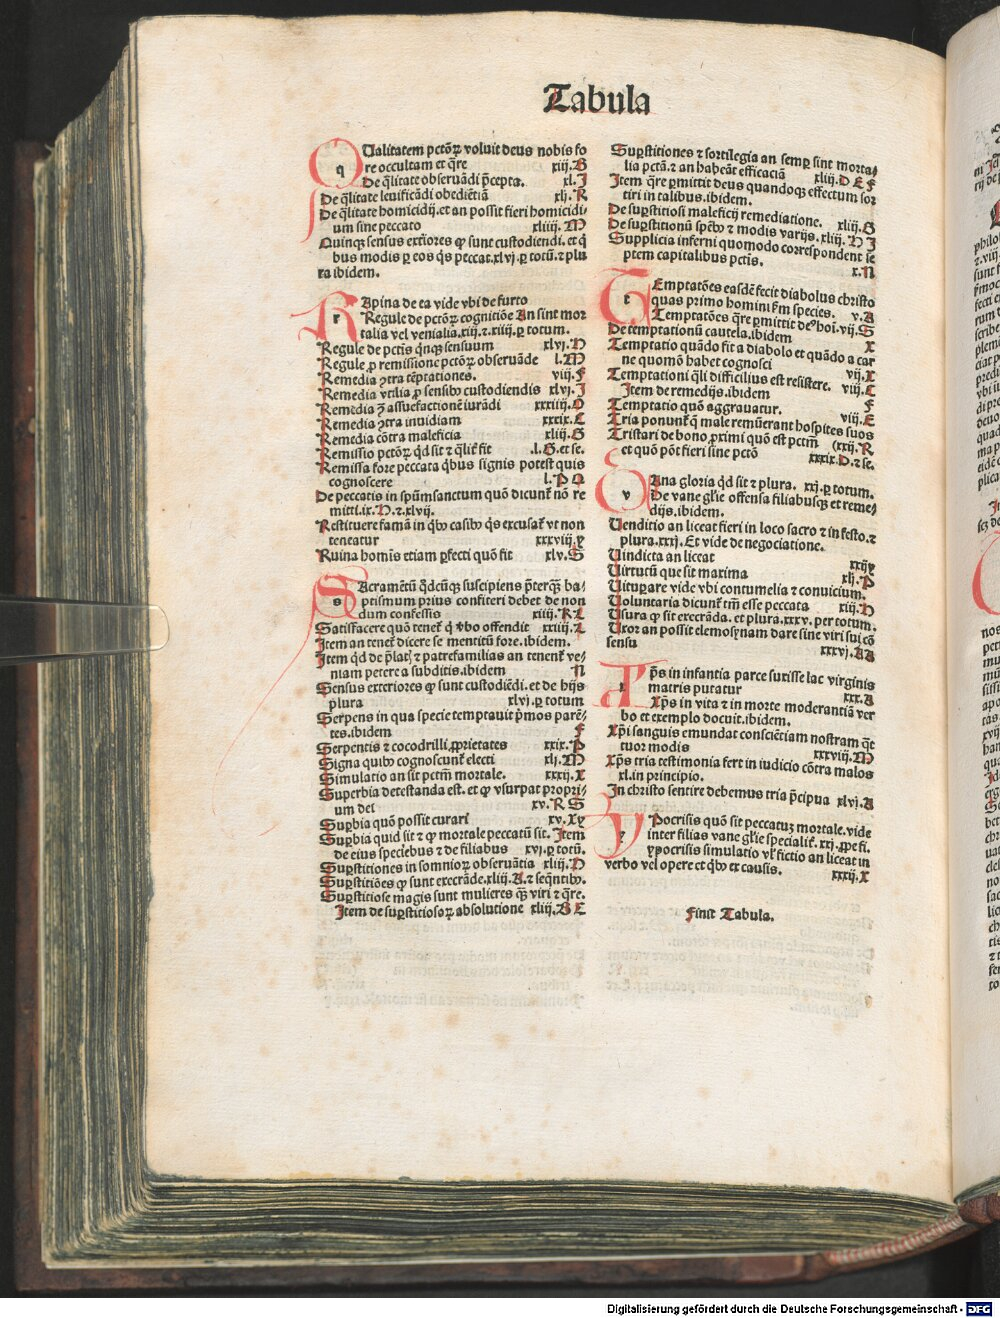 Tabula
QUalitatem pctõꝝ voluit deus nobis fo
re occultam et q̄re xiij.B
De q̄litate obseruādi p̄cepta. xl.I
De q̄litate leuificādi obediētiā xlj.R
De q̄litate homicidij.et an possit fieri homicidi⸗
um sine peccato xliiij.M
Quinq; sensus exteriores ꝙ sunt custodiendi. et q̇
bus modis ꝑ eos q̇s peccat.xlvj.ꝑ totū.⁊ plu
ra ibidem.
RApina de ea vide vbi de furto
Regule de pctõꝝ cognitiõe An sint mor
talia vel venialia.xiij.⁊.xiiij.ꝑ totum.
Regule de pctis q̇nq; sensuum xlvj.N
Regule ꝓ remissione pctõꝝ obseruāde l.M
Remedia ꝯtra tẽptationes. viij.F
Remedia vtilia ꝓ sensibꝰ custodiendis xlvj.I
Remedia ꝯ̄ assuefactionẽ iurādi xxxiiij.O
Remedia ꝯtra inuidiam xxxix.E
Remedia cõtra maleficia xliij.G
Remissio pctõꝝ qd sit ⁊ q̇lit̾ fit .l.G.et se.
Remissa fore peccata q̇bus signis potest quis
cognoscere l.P Q
De peccatis in spūmsanctum quõ dicunt̾ nõ re
mitti.ix.N.⁊.xlvij.
Restituere famā in q̇bꝰ casibꝰ q̇s excusat̾ vt non
teneatur xxxviij.y
Ruina hominis etiam ꝑfecti quõ fit xlv.S
SAcramẽtū q̇dcūq; suscipiens p̄terq̄ ba⸗
ptismum prius confiteri debet de non
dum confessis xiiij.K L
Satisfacere quõ tenet̾ q̇ v̾bo offendit xxiiij.Z
Item an tenet̾ dicere se mentitū fore.ibidem.
Item qd de p̄lati ⁊ patrefamilias an tenent̾ ve⸗
niam petere a subditis.ibidem N
Sensus exteriores ꝙ sunt custodiẽdi.et de hijs
plura xlvj.ꝑ totum
Serpens in qua specie temptauit p̄mos parẽ⸗
tes.ibidem F
Serpentis ⁊ cocodrilli ꝓprietates xxix.P
Signa quibꝰ cognoscunt̾ electi xlj.M
Simulatio an sit pctm̄ mortale. xxxij.X
Superbia detestanda est. et ꝙ vsurpat propri⸗
um dei xv.R S
Suꝑbia quõ possit curari xv.X y
Suꝑbia quid sit ⁊ ꝙ mortale peccatū sit. Item
de eius speciebus ⁊ de filiabus xvj.ꝑ totū.
Suꝑstitiones in somnioꝝ obseruātia xliij.N
Suꝑstitiões ꝙ sunt execrāde.xliij.A.⁊ seq̄ntibꝰ.
Suꝑstitiose magis sunt mulieres q̄ viri ⁊ q̄re.
Item de suꝑstitiosoꝝ absolutione xliij.B E
Suꝑstitiones ⁊ sortilegia an semꝑ sint morta⸗
lia pctā.⁊ an habeāt efficaciā xliij.D E F
Item q̄re ꝑmittit deus quandoq; effectum sor
tiri in talibus.ibidem.
De suꝑstitiosi maleficij remediatione. xliij.G
De suꝑstitionū spēbꝰ ⁊ modis varijs.xliij.N I
Supplicia inferni quomodo correspondent se
ptem capitalibus pctis. x.N
TEmptatões easdẽ fecit diabolus christo
quas primo homini ẜm species. v.A
Temptatões q̄re ꝑmittit de⁹ hoī.vij.S
De temptationū cautela.ibidem X
Temptatio quādo fit a diabolo et quādo a car
ne quomõ habet cognosci vij.X
Temptationi q̇li difficilius est resistere. viij.C
Item de remedijs.ibidem F
Temptatio quõ aggrauatur. viij.E
Tria ponunt̾ q̇ male remūerant hospites suos
Tristari de bono ꝓximi quõ est pctm̄ (xxij.R
et quõ põt fieri sine pctõ xxxix.D.⁊ se.
VAna gloria qd sit ⁊ plura. xxj.ꝑ totum.
De vane gl̄ie offensa filiabusq; et reme⸗
dijs.ibidem.
Uenditio an liceat fieri in loco sacro ⁊ in festo.⁊
plura.xxxj. Et vide de negociatione.
Uindicta an liceat xxiiy
Uirtutū que sit maxima xlj.P
Uituꝑare vide vbi contumelia ⁊ conuicium.
Uoluntaria dicunt̾ tm̄ esse peccata xiij.N
Usura ꝙ sit execrāda. et plura.xxxv.per totum.
Uxor an possit elemosynam dare sine viri sui cõ
sensu xxxvj.AA
Xp̄s in infantia parce suxisse lac virginis
matris putatur xxx.A
Xp̄s in vita ⁊ in morte moderantiā ver
bo et exemplo docuit.ibidem.
Xp̄i sanguis emundat consciẽtiam nostram q̇t
tuor modis xxxviij.M
Xp̄s tria testimonia fert in iudicio cõtra malos
xl.in principio.
In christo sentire debemus tria p̄cipua xlvj.A
YPocrisis quõ sit peccatuꝫ mortale.vide
inter filias vane gl̄ie specialit̾. xxj.ꝓpe fi.
ypocrisis simulatio vl̾ fictio an liceat in
verbo vel opere et q̇bꝰ ex causis. xxxij.X
Finit Tabula.
Digitalisierung gefördert durch die Deutsche Forschungsgemeinschaft - DFG